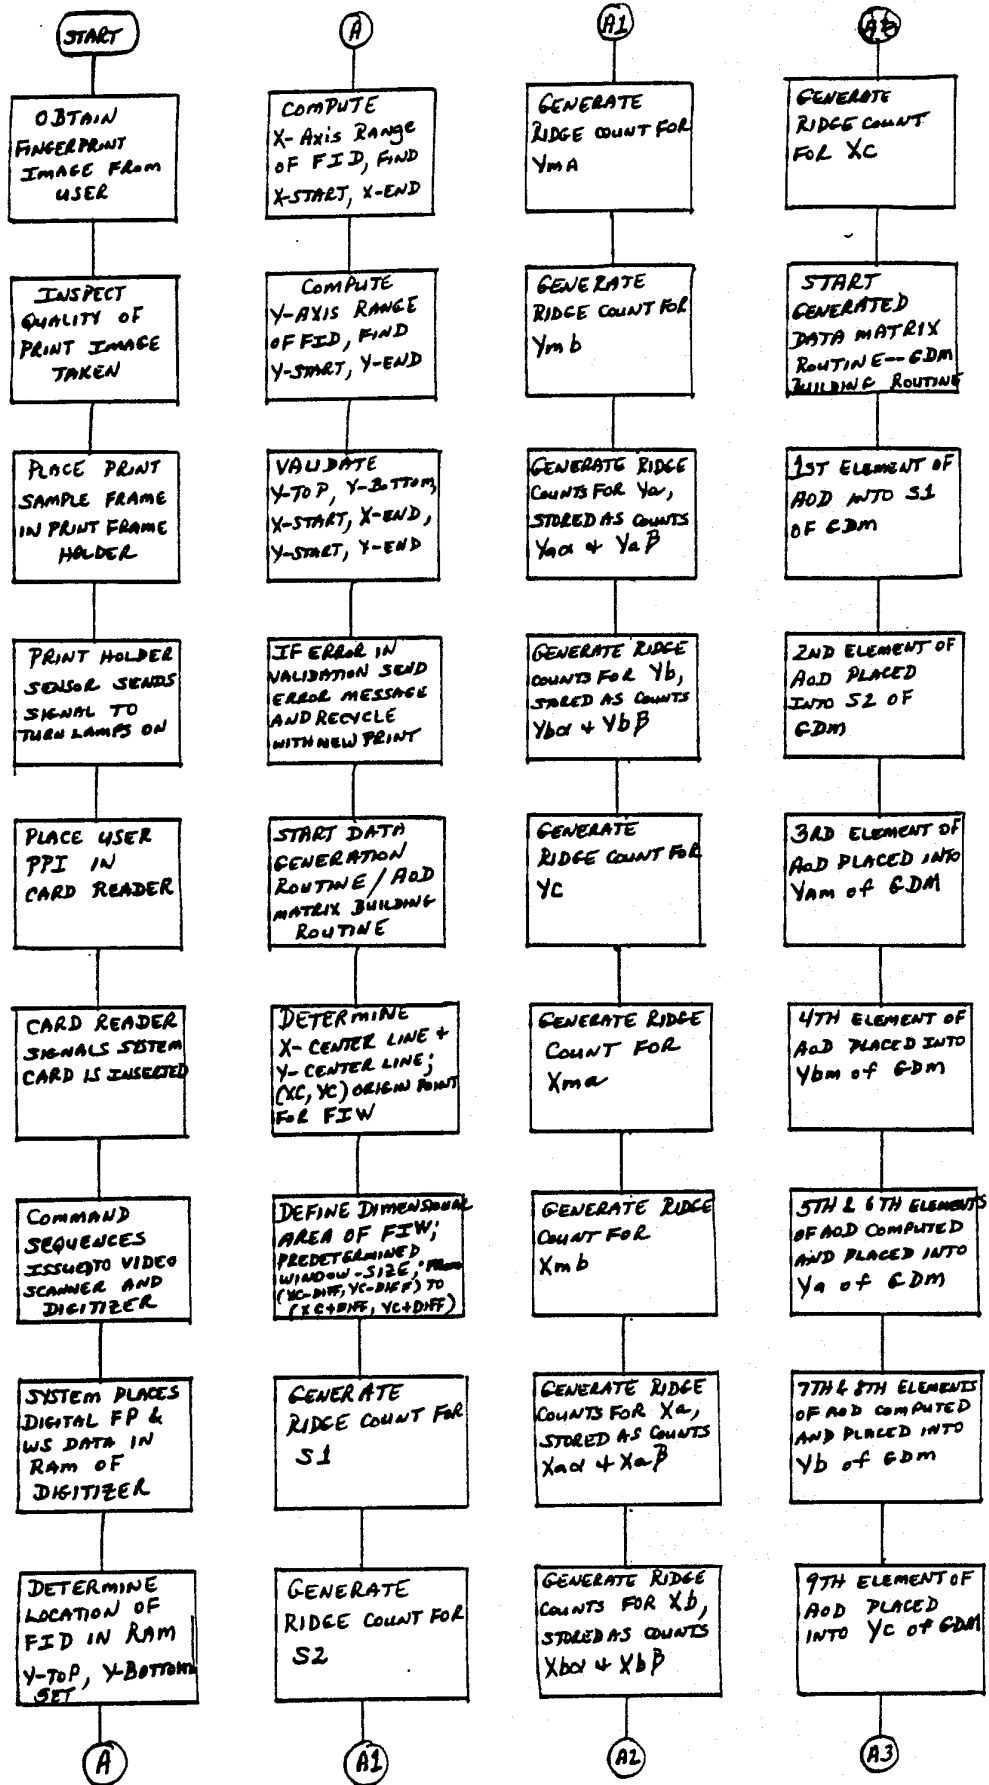 START
OBTAIN
FINGERPRINT
IMAGE FROM
USER
INSPECT
QUALITY OF
PRINT IMAGE
TAKEN
PLACE PRINT
SAMPLE FRAME
IN PRINT FRAME
HOLDER
PRINT HOLDER
SENSOR SENDS
SIGNAL TO
TURN LAMPS ON
PLACE USER
PPI IN
CARD READER
CARD READER
SIGNALS SYSTEM
CARD IS INSERTED
COMMAND
SEQUENCES
ISSUED TO VIDEO
SCANNER AND
DIGITIZER
SYSTEM PLACES
DIGITAL FP &
WS DATA IN
RAM OF
DIGITIZER
DETERMINE
LOCATION OF
FID IN RAM
Y-TOP, Y-BOTTOM
SET
A
A
COMPUTE
X-AXIS RANGE
OF FID, FIND
X-START, X-END
COMPUTE
Y-AXIS RANGE
OF FID, FIND
Y-START, Y-END
VALIDATE
Y-TOP, Y-BOTTOM,
X-START, X-END,
Y-START, Y-END
IF ERROR IN
VALIDATION SEND
ERROR MESSAGE
AND RECYCLE
WITH NEW PRINT
START DATA
GENERATION
ROUTINE / AOD
MATRIX BUILDING
ROUTINE
DETERMINE
X-CENTER LINE +
Y-CENTER LINE;
(XC, YC) ORIGIN POINT
FOR FIW
DEFINE DIMENSIONAL
AREA OF FIW;
PREDETERMINED
WINDOW-SIZE; FROM
(XC-DIFF, YC-DIFF) TO
(XC+DIFF, YC+DIFF)
GENERATE
RIDGE COUNT FOR
S1
GENERATE
RIDGE COUNT FOR
S2
A1
A1
GENERATE
RIDGE COUNT FOR
YmA
GENERATE
RIDGE COUNT FOR
Ymb
GENERATE RIDGE
COUNTS FOR Ya,
STORED AS COUNTS
Yaα + Yaβ
GENERATE RIDGE
COUNTS FOR Yb,
STORED AS COUNTS
Ybα + Ybβ
GENERATE
RIDGE COUNT FOR
YC
GENERATE RIDGE
COUNT FOR
Xma
GENERATE RIDGE
COUNT FOR
Xmb
GENERATE RIDGE
COUNTS FOR Xa,
STORED AS COUNTS
Xaα + Xaβ
GENERATE RIDGE
COUNTS FOR Xb,
STORED AS COUNTS
Xbα + Xbβ
A2
GENERATE
RIDGE COUNT
FOR XC
START
GENERATED
DATA MATRIX
ROUTINE--GDM
BUILDING ROUTINE
1ST ELEMENT OF
AOD INTO S1
OF GDM
2ND ELEMENT OF
AOD PLACED
INTO S2 OF
GDM
3RD ELEMENT OF
AOD PLACED INTO
YAM of GDM
4TH ELEMENT OF
AOD PLACED INTO
Ybm of GDM
5TH & 6TH ELEMENTS
OF AOD COMPUTED
AND PLACED INTO
Ya of GDM
7TH & 8TH ELEMENTS
OF AOD COMPUTED
AND PLACED INTO
Yb of GDM
9TH ELEMENT OF
AOD PLACED
INTO YC of GDM
A3